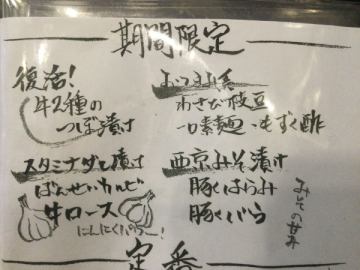 期間限定
復活!
牛2種の
つぼ漬け
スタミナダレ漬け
ばんせいカルビ
牛ロース
にんにくパワ〜!
おつまみ系
わさび枝豆
一口素麺・もずく酢
西京みそ漬け
豚はらみ
豚バラ
みその甘み
定番